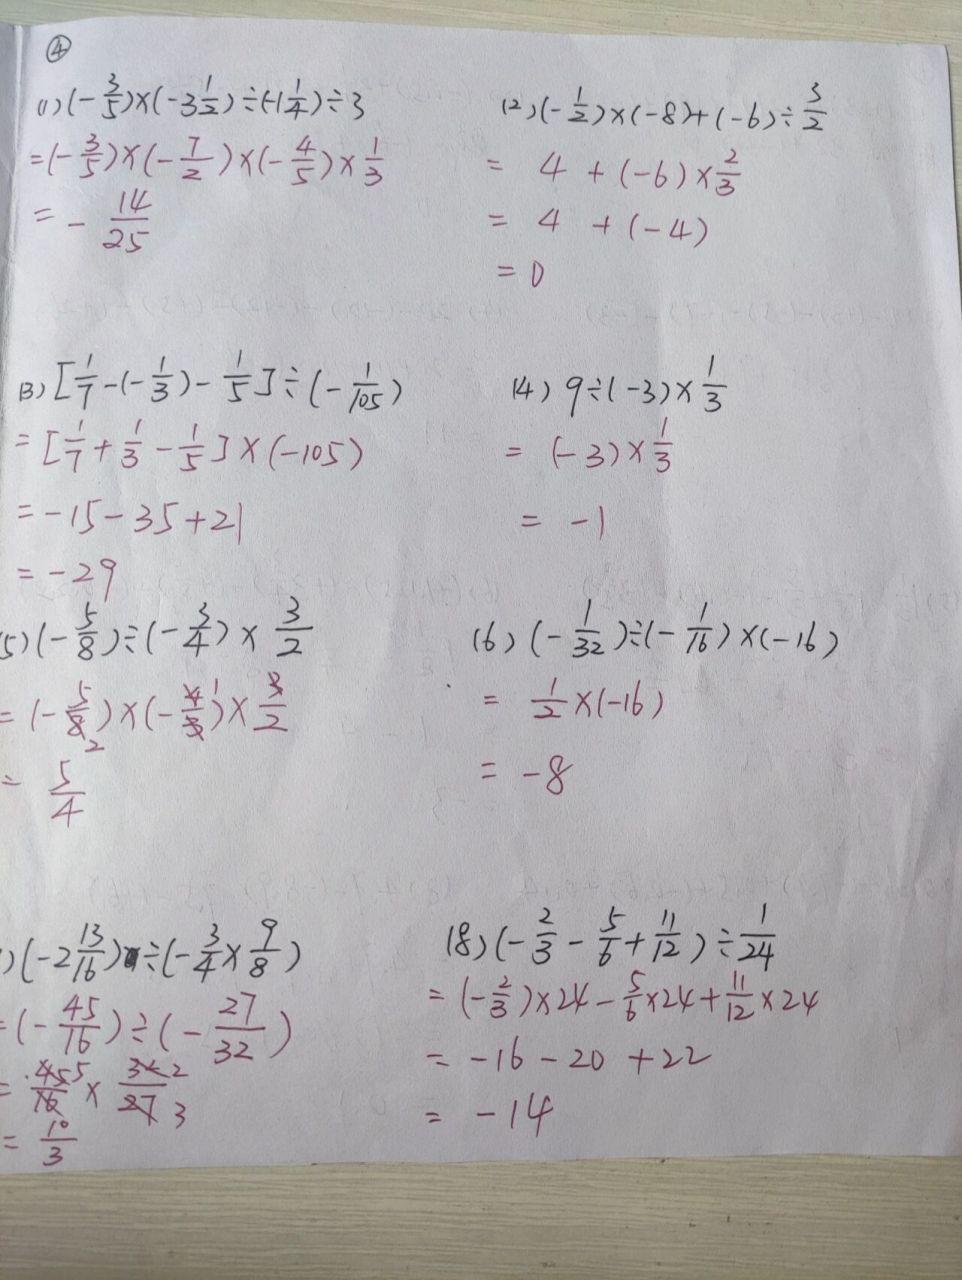 ④
(1) (-3/5)×(-3 1/2)÷(-1 1/4)÷3
=(-3/5)×(-7/2)×(-4/5)×1/3
= - 14/25
(2) (-1/2)×(-8)+(-6)÷3/2
= 4 +(-6)×2/3
= 4 +(-4)
= 0
(3) [1/7-(-1/3)-1/5]÷(-1/105)
= [1/7+1/3-1/5]×(-105)
= -15-35+21
= -29
(4) 9÷(-3)×1/3
= (-3)×1/3
= -1
5) (-5/8)÷(-3/4)×3/2
= (-5/8)×(-4/3)×3/2
= 5/4
(6) (-1/32)÷(-1/16)×(-16)
= 1/2×(-16)
= -8
) (-2 13/16)÷(-3/4×9/8)
=(-45/16)÷(-27/32)
= 45/16 × 32/27
= 10/3
(8) (-2/3-5/6+11/12)÷1/24
= (-2/3)×24-5/6×24+11/12×24
= -16-20+22
= -14